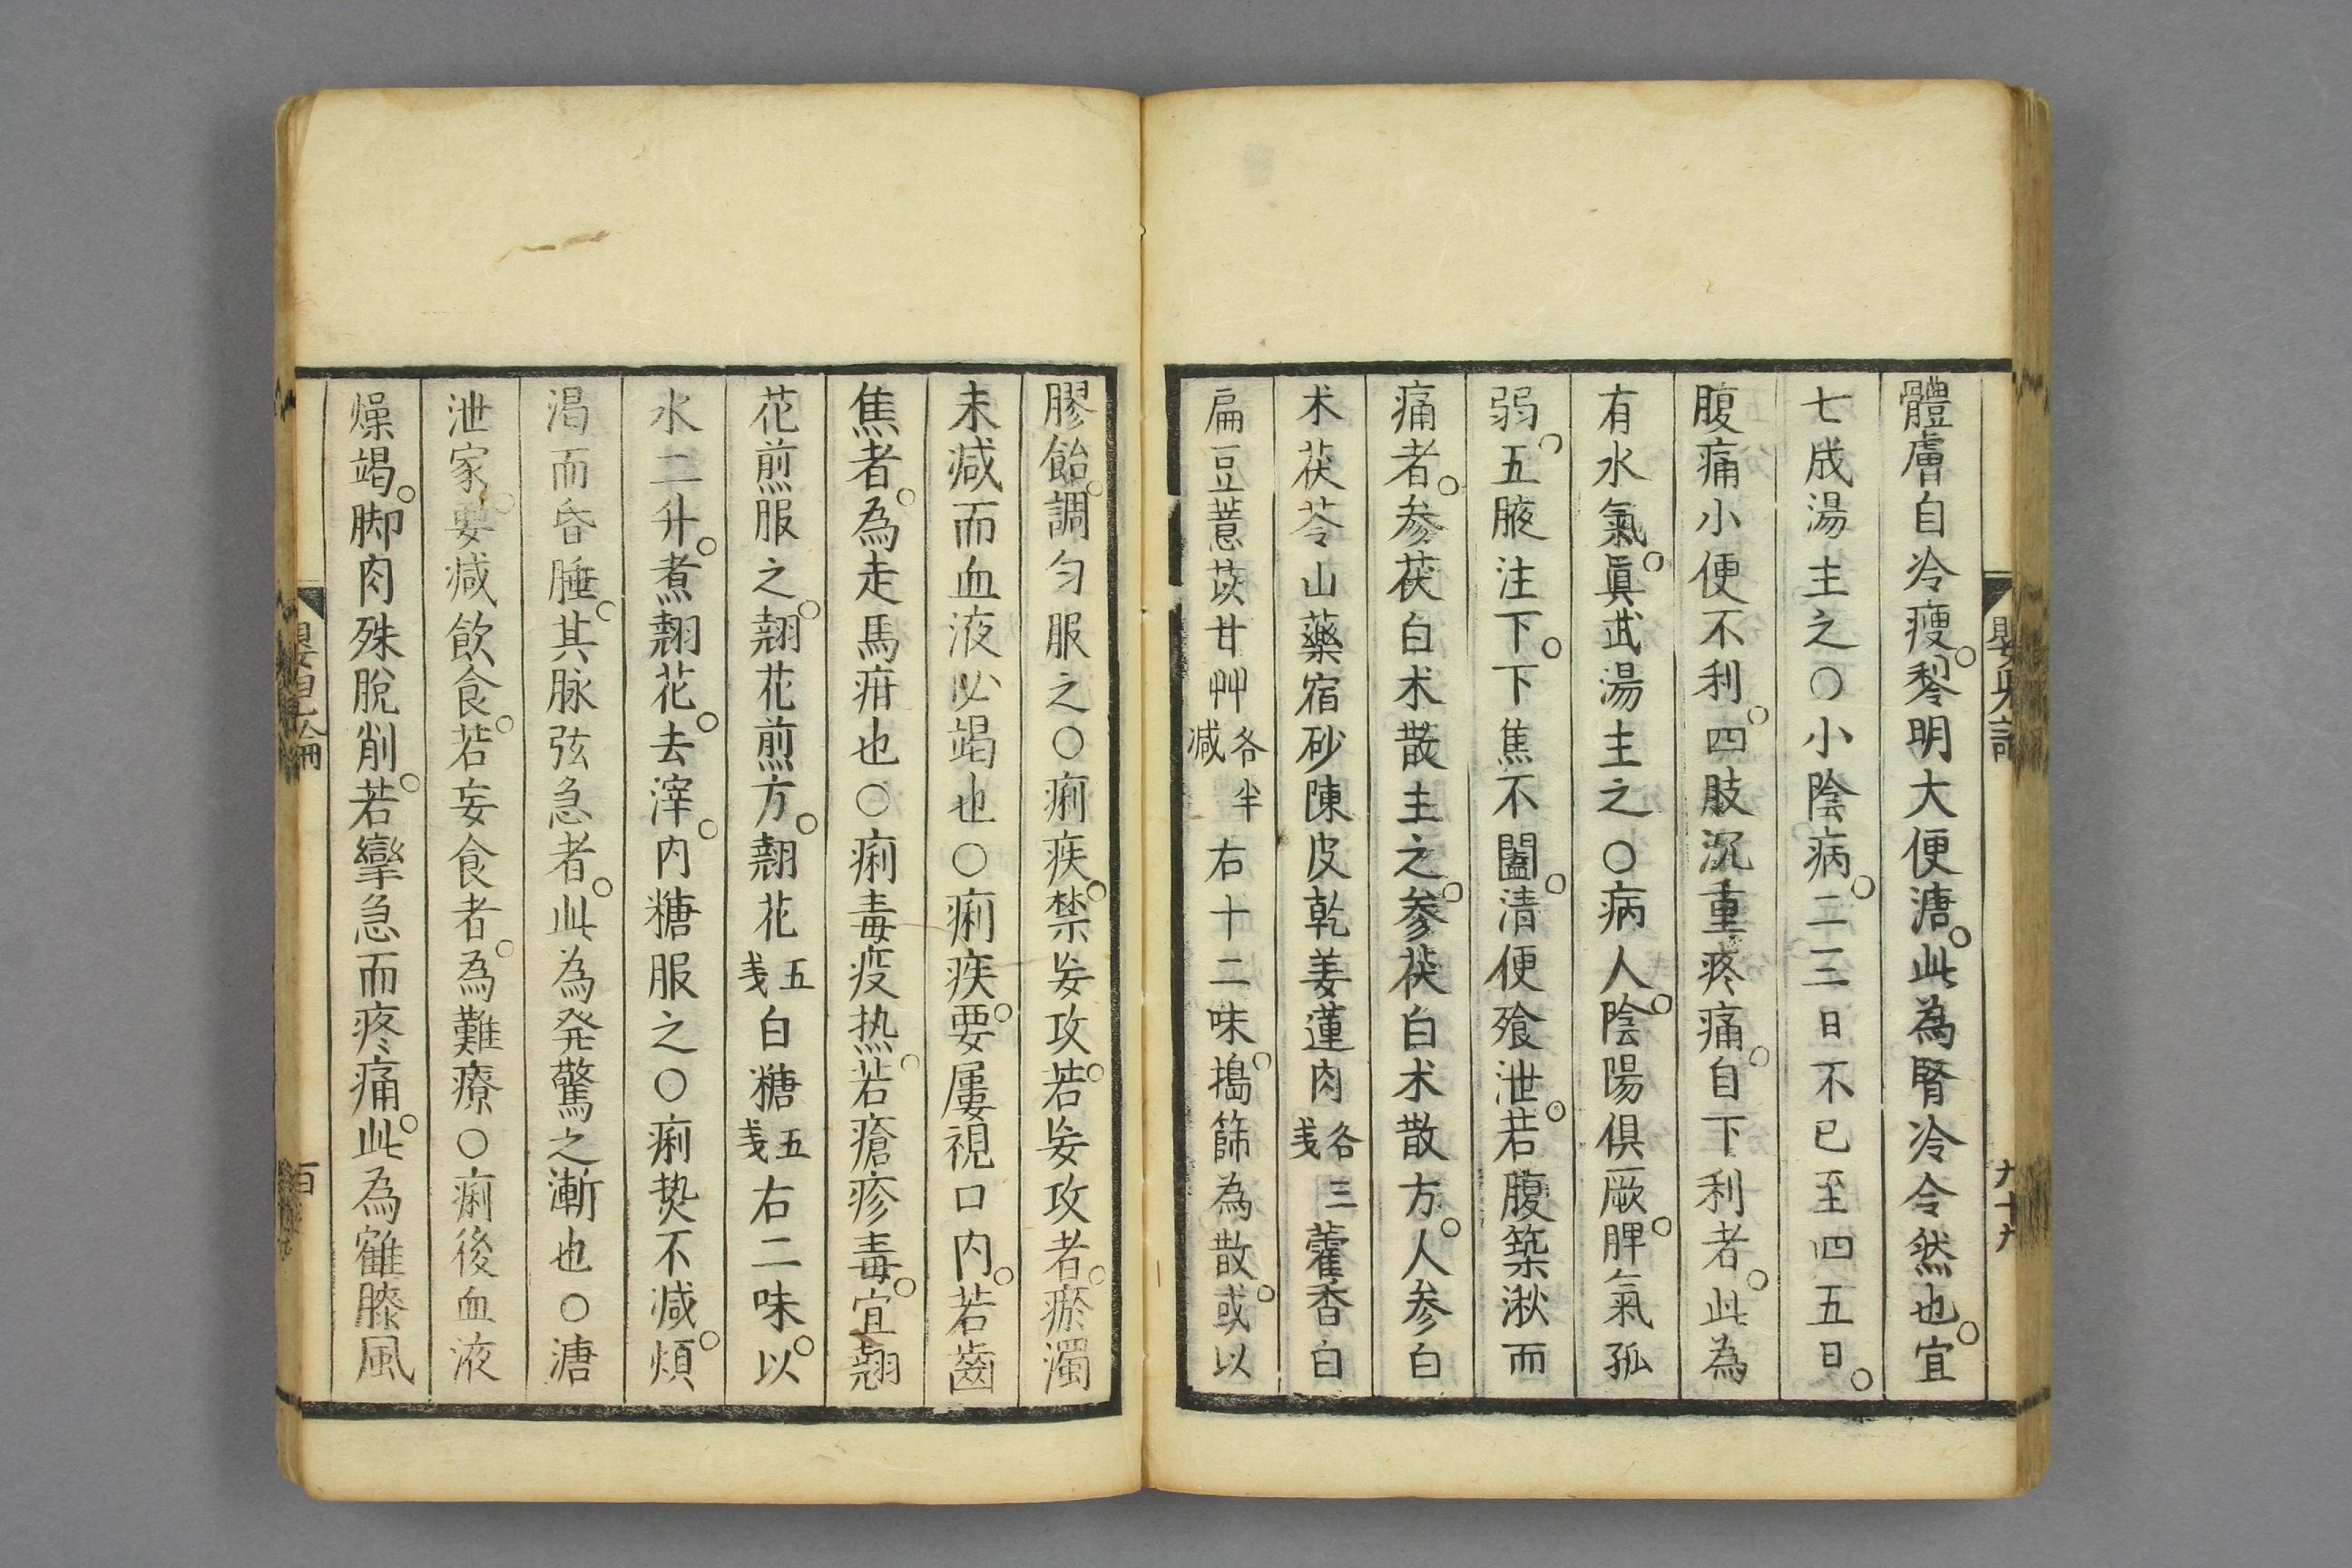 體膚自冷瘦。黎明大便溏。此為腎冷令然也。宜
七成湯主之○小陰病。二三日不已至四五日。
腹痛小便不利。四肢沉重疼痛。自下利者。此為
有水氣。眞武湯主之○病人。陰陽倶厥。脾氣孤
弱。五腋注下。下焦不闔。清便飱泄。若腹築湫而
痛者。参茯白术散主之。参茯白术散方。人参白
术茯苓山藥宿砂陳皮乾姜蓮肉各三戋藿香白
扁豆薏苡甘艸各半减右十二味。搗篩為散。或以
九十九
膠飴。調勻服之○痢疾。禁妄攻。若妄攻者。瘀濁
未减而血液必竭也○痢疾。要屢視口内。若齒
焦者。為走馬疳也○痢毒疫热。若瘡疹毒。宜翹
花煎服之。翹花煎方。翹花五戋白糖五戋右二味。以
水二升。煮翹花。去滓。内糖服之○痢热不减。煩
渇而昏睡。其脉弦急者。此為発驚之漸也○溏
泄家。要减飲食。若妄食者。為難療○痢後血液
燥竭。脚肉殊脫削。若攣急而疼痛。此為寉膝風
百